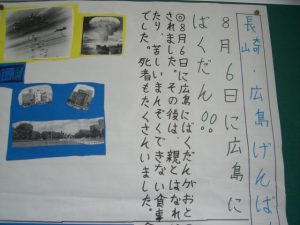 長崎・広島げんば
8月6日に広島に
ばくだん!!
◎8月6日に広島にばくだんがおと
されました。その後は、親とはなれ
たり、苦しいまんぞくできない食事
でした。死者もたくさんいました。